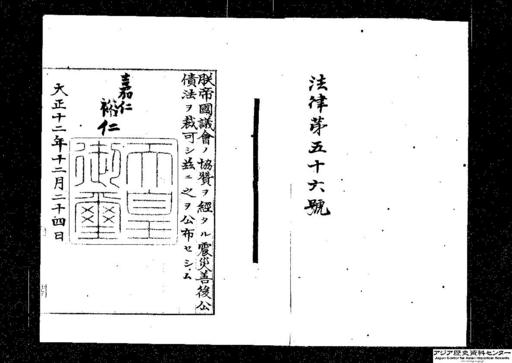 法律第五十六號
朕帝國議會ノ協贊ヲ經タル震災善後公
債法ヲ裁可シ茲ニ之ヲ公布セシム
嘉仁
裕仁
天皇
御璽
大正十二年十二月二十四日
アジア歴史資料センター
Japan Center for Asian Historical Records